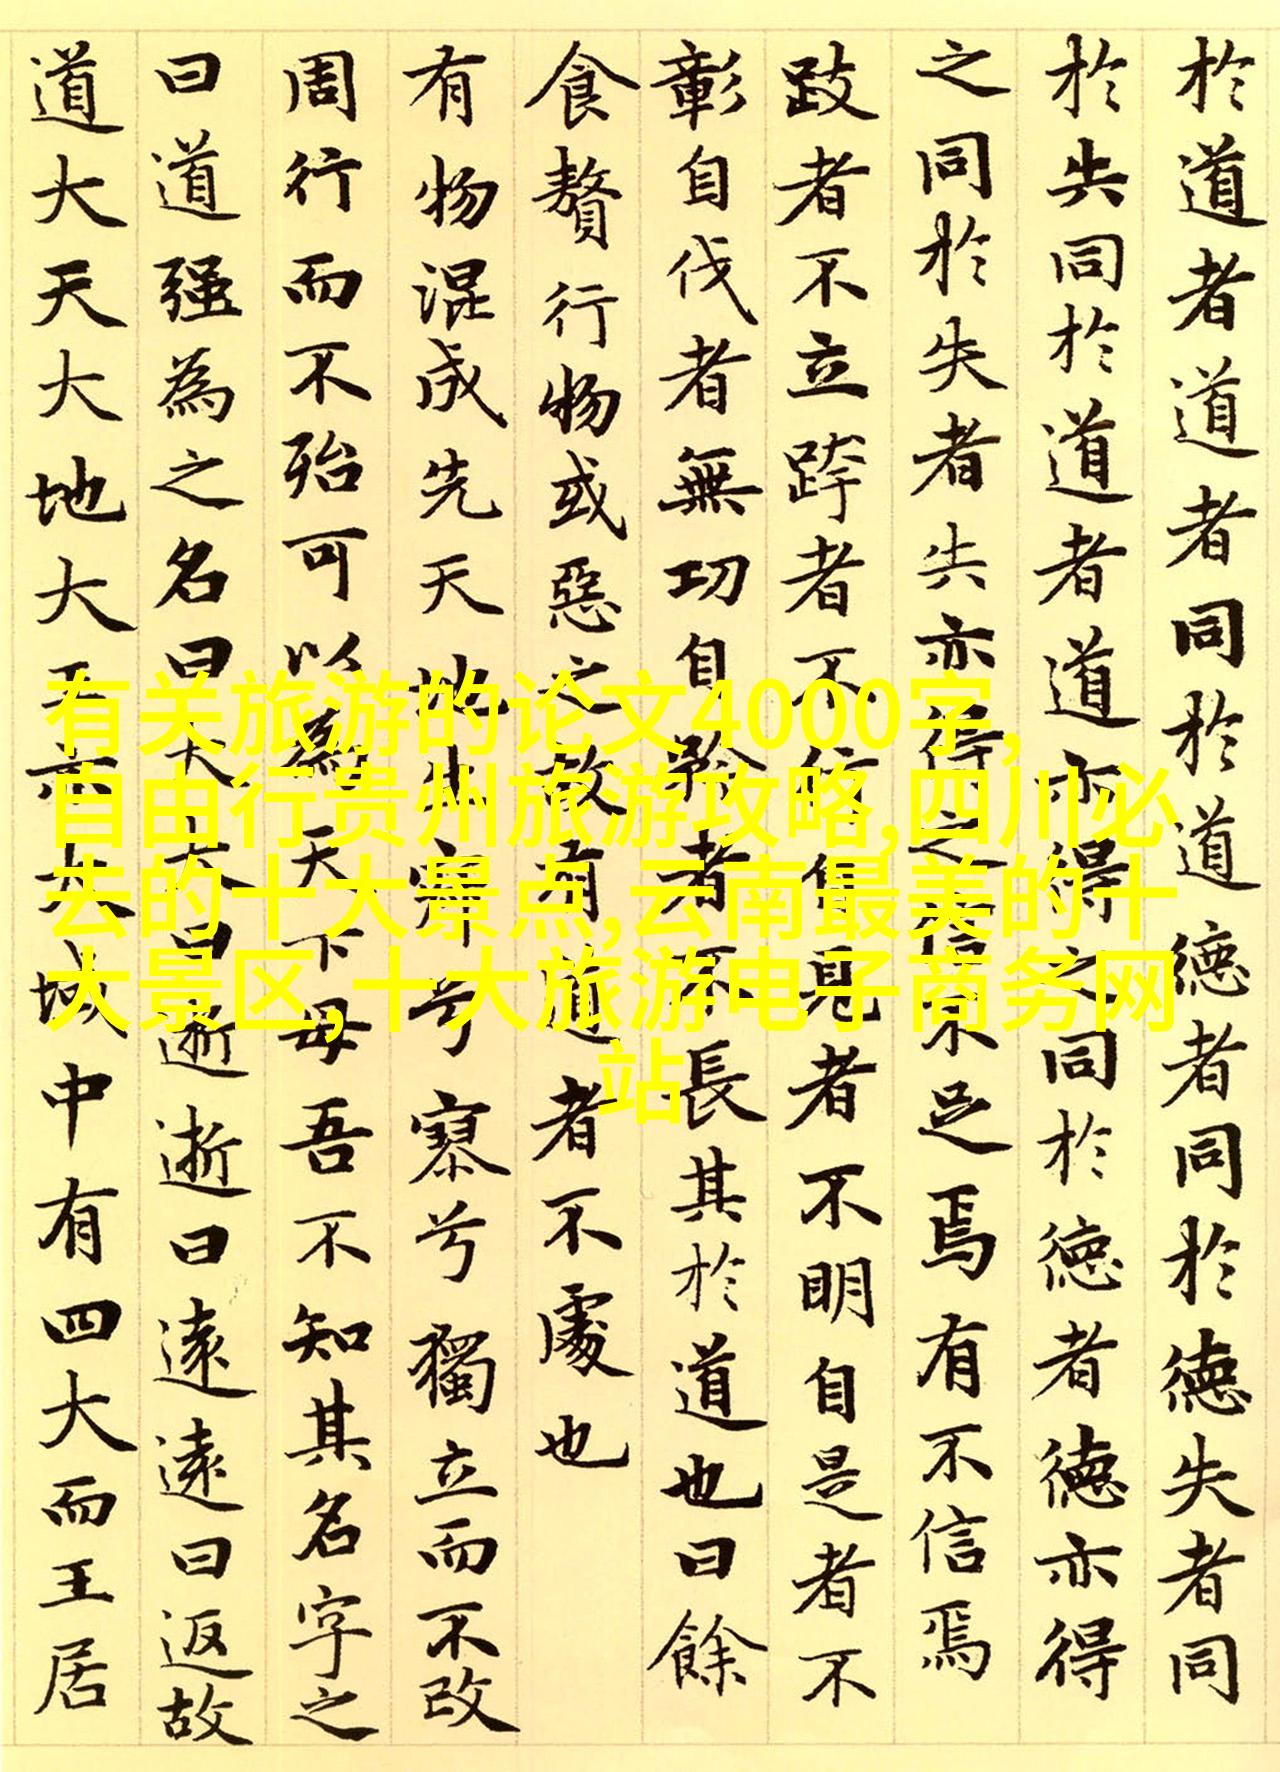 於道者道者同於道德者同於德失者同
於失同於道者道亦得之同於德者德亦得
之同於失者失亦得之信不足焉有不信焉
跂者不立跨者不行自見者不明自是者不
彰自伐者無功自矜者不長其於道也曰餘
食贅行物或惡之故有道者不處也
有物混成先天地生寂兮寥兮獨立而不改
周行而不殆可以為天下母吾不知其名字之
曰道强為之名曰大大曰逝逝曰遠遠曰返故
道大天大地大王亦大域中有四大而王居
有关旅游的论文4000字,
自由行贵州旅游攻略,四川必
去的十大景点,云南最美的十
大景区,十大旅游电子商务网
站